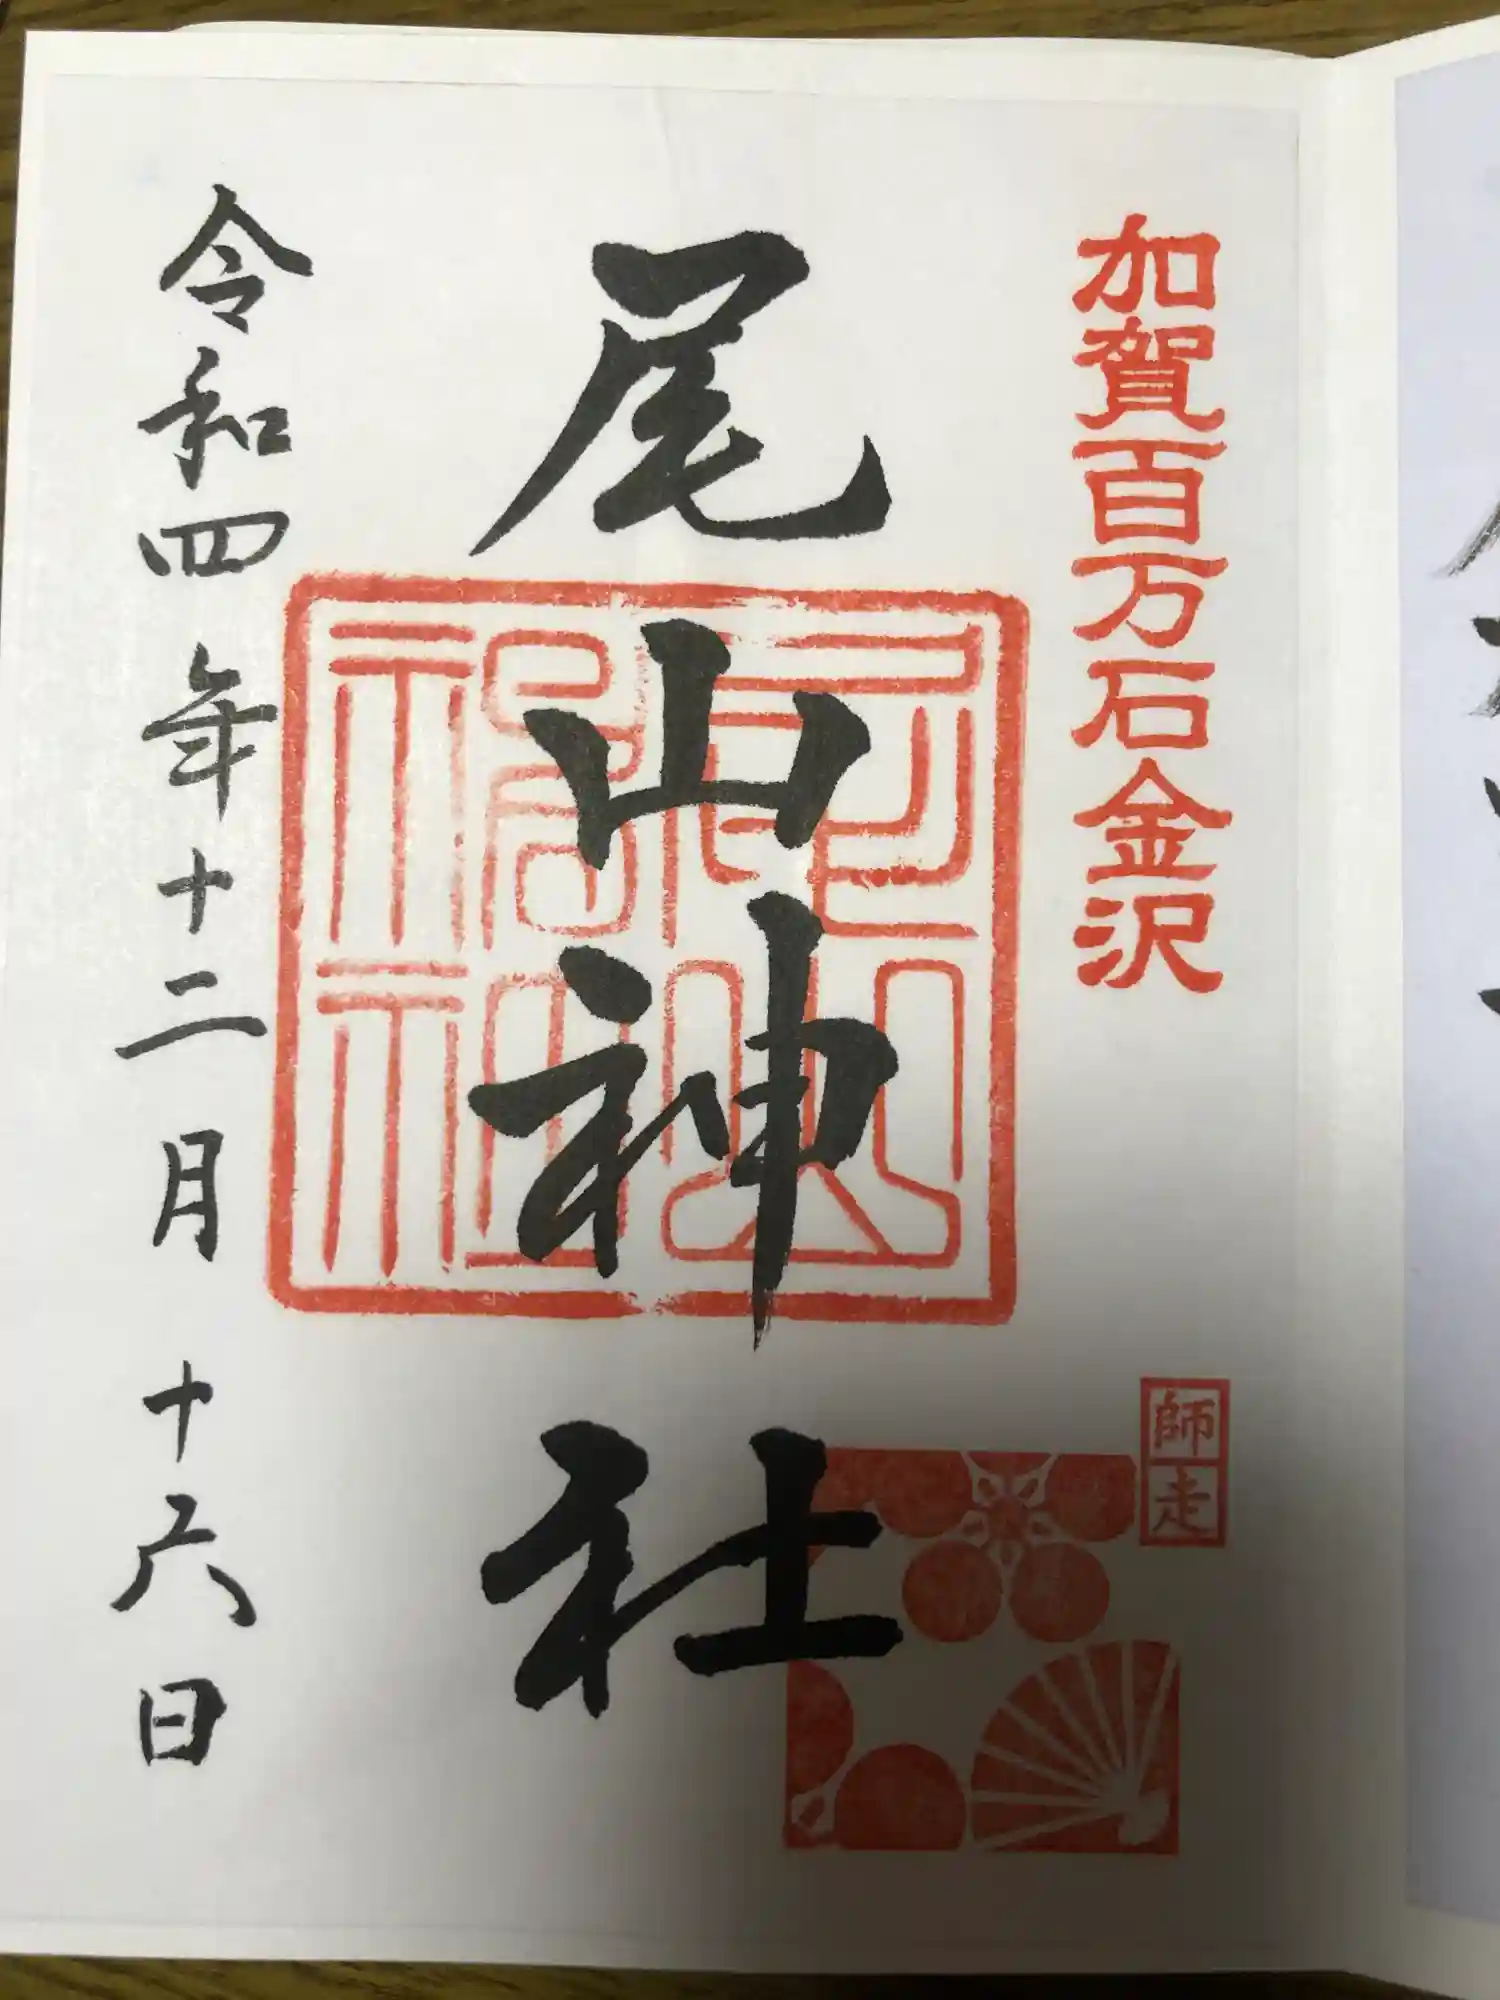 加賀百万石金沢
師走
尾山神社
尾山神社
令和四年十二月十六日